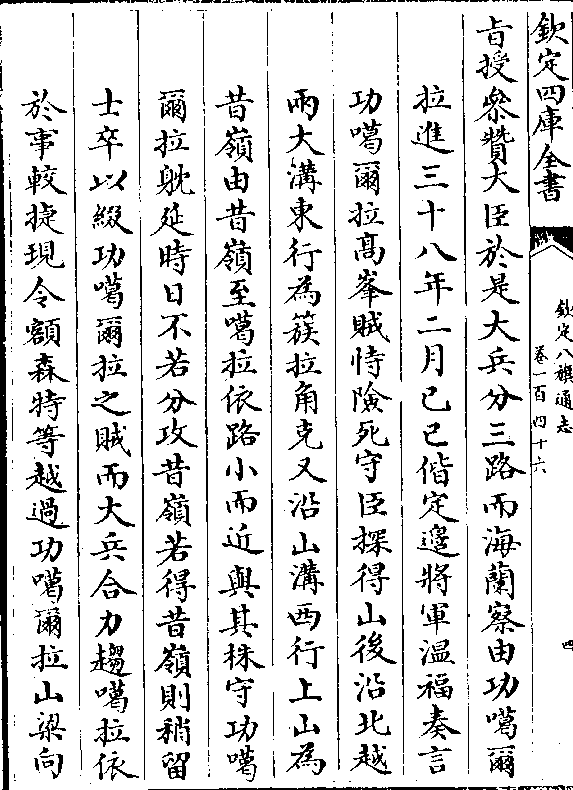 欽定四庫全書
欽定八旗通志
卷一百四十六
四
㫖授叅贊大臣於是大兵分三路而海蘭察由功噶爾
拉進三十八年二月己巳偕定邊將軍温福奏言
功噶爾拉高峯賊恃險死守臣探得山後沿北越
兩大溝東行為簇拉角克又沿山溝西行上山為
昔嶺由昔嶺至噶拉依路小而近與其株守功噶
爾拉躭延時日不若分攻昔嶺若得昔嶺則稍留
士卒以綴功噶爾拉之賊而大兵合力趨噶拉依
於事較捷現令額森特等越過功噶爾拉山梁向